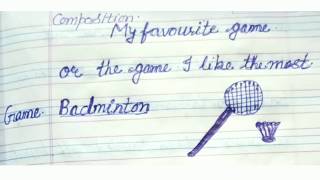 Composition.
My favourite game.
or the game I like the most
Game. Badminton